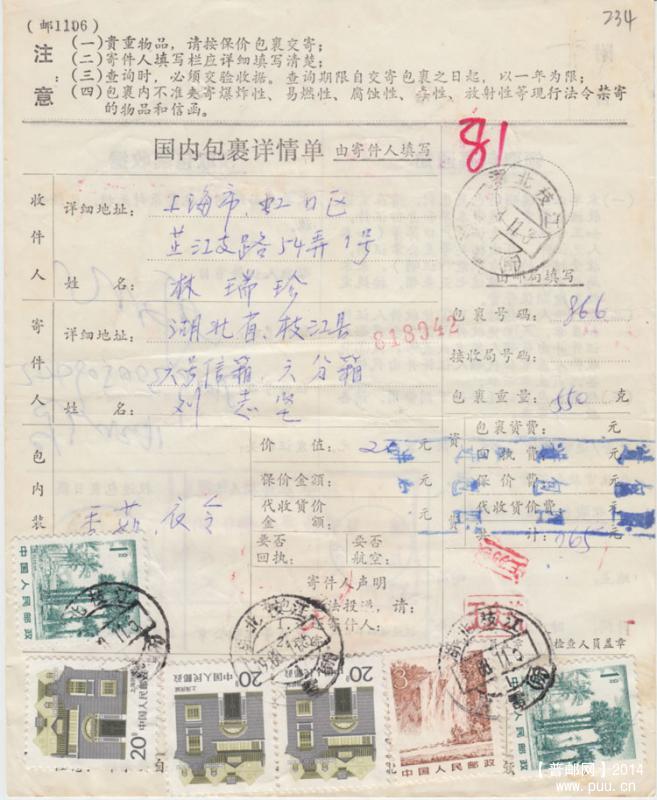 (邮1106)
234
注意:
(一)贵重物品,请按保价包裹交寄;
(二)寄件人填写栏应详细填写清楚;
(三)查询时,必须交验收据。查询期限自交寄包裹之日起,以一年为限;
(四)包裹内不准夹寄爆炸性、易燃性、腐蚀性、毒性、放射性等现行法令禁寄
的物品和信函。
国内包裹详情单 由寄件人填写
81
湖北枝江
由邮局填写
收件人
详细地址: 上海市.虹口区
芷江支路54弄1号
姓名: 林瑞珍
寄件人
详细地址: 湖北省.枝江县
六号信箱.六分箱
姓名: 刘志坚
818942
包裹号码: 866
接收局号码:
包裹重量: 550 克
包内装
香菇.衣令
价值: 20元
保价金额: 元
代收货价金额: 元
要否回执:
要否航空:
资费
包裹资费: 元
回执费: 元
保价费: 元
代收货价费: 元
共计: 065元
寄件人声明
法投递,请:
寄件人:
检查人员盖章
湖北枝江
湖北枝江
湖北枝江
1分
中国人民邮政
20分
中国人民邮政
20分
中国人民邮政
20分
中国人民邮政
3分
中国人民邮政
1分
中国人民邮政
【普邮网】2014
www.puu.cn